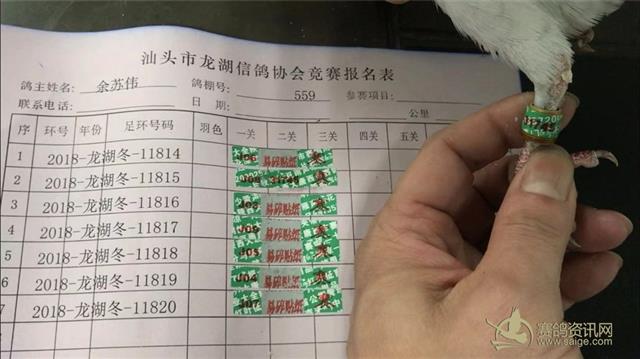 汕头市龙湖信鸽协会竞赛报名表
鸽主姓名: 余苏伟 鸽棚号: 559 参赛项目:
联系电话: 日期: 公里
序 环号 年份 足环号码 羽色 一关 二关 三关 四关 五关
1 2018-龙湖冬-11814 易碎贴纸
2 2018-龙湖冬-11815
3 2018-龙湖冬-11816 易碎贴纸
4 2018-龙湖冬-11817 易碎贴纸
5 2018-龙湖冬-11818 J05 易碎贴纸
6 2018-龙湖冬-11819 J04 易碎贴纸
7 2018-龙湖冬-11820 J07 易碎贴纸
赛鸽资讯网
www.saige.com